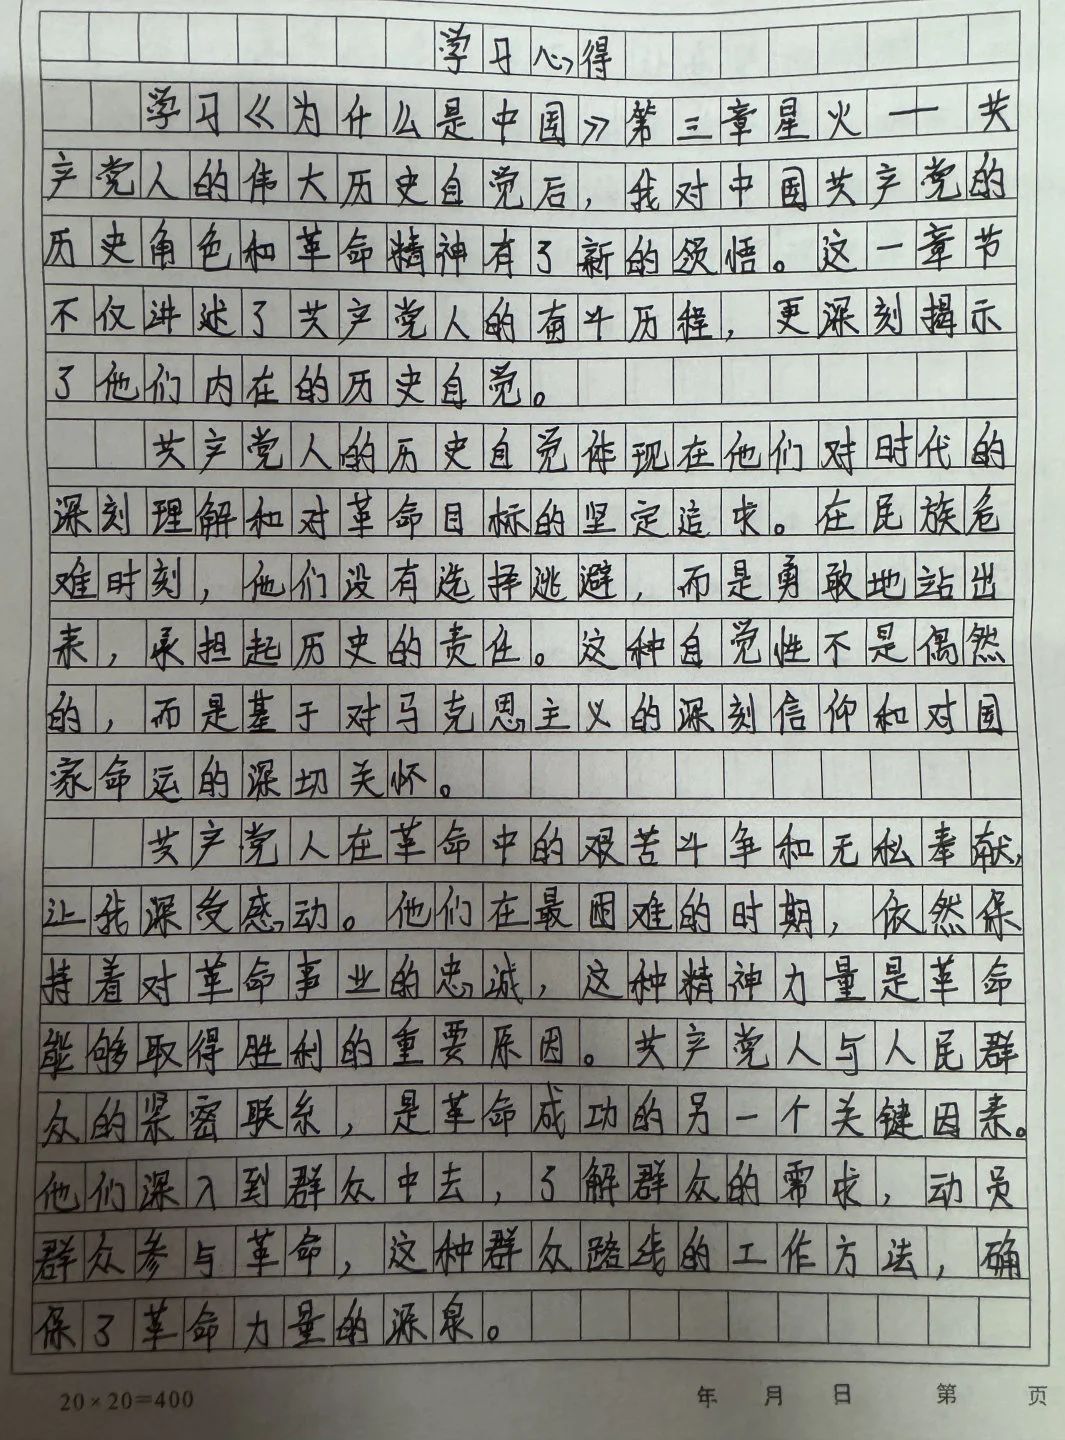 学习心得
学习《为什么是中国》第三章星火一共
产党人的伟大历史自觉后，我对中国共产党的
历史角色和革命精神有了新的领悟。这一章节
不仅讲述了共产党人的奋斗历程，更深刻揭示
了他们内在的历史自觉。
共产党人的历史自觉体现在他们对时代的
深刻理解和对革命目标的坚定追求。在民族危
难时刻，他们没有选择逃避，而是勇敢地站出
来，承担起历史的责任。这种自觉性不是偶然
的，而是基于对马克思主义的深刻信仰和对国
家命运的深切关怀。
共产党人在革命中的艰苦斗争和无私奉献，
让我深受感动。他们在最困难的时期，依然保
持着对革命事业的忠诚，这种精神力量是革命
能够取得胜利的重要原因。共产党人与人民群
众的紧密联系，是革命成功的另一个关键因素。
他们深入到群众中去，了解群众的需求，动员
群众参与革命，这种群众路线的工作方法，确
保了革命力量的源泉。
20×20=400 年 月 日 第 页